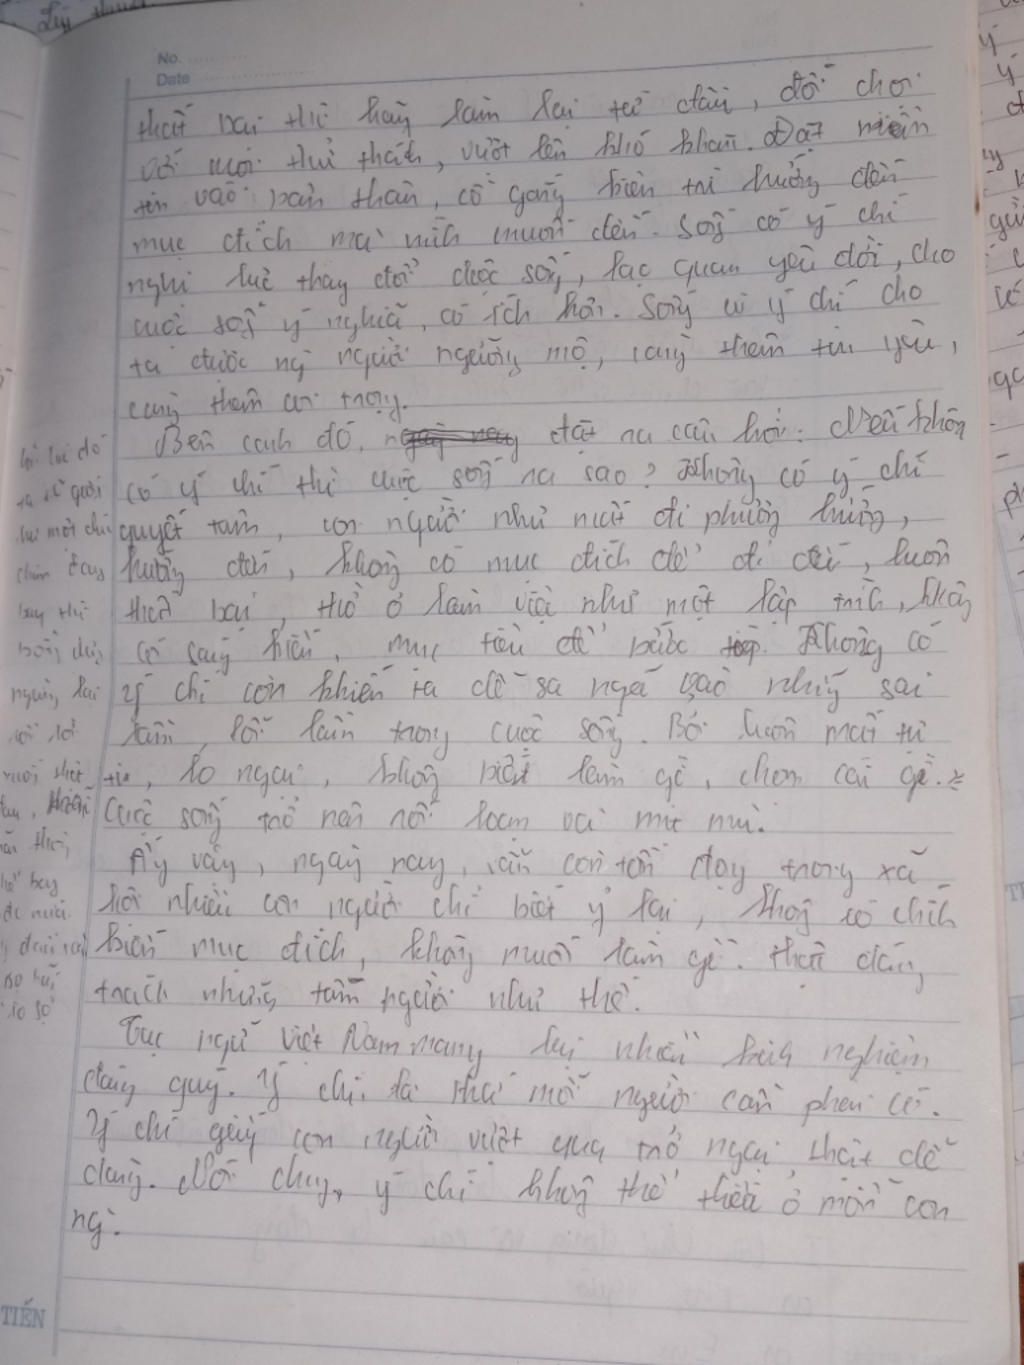 No.
Date
thất bại thì hãy làm lại từ đầu, đối chọi
với mọi thử thách, vượt lên khó khăn. Đặt niềm
tin vào bản thân, cố gắng kiên trì hướng đến
mục đích mà mình muốn đến. Sống có ý chí
nghị lực thay đổi cuộc sống, lạc quan yêu đời, cho
cuộc sống ý nghĩa, có ích hơn. Sống có ý chí cho
ta được ng người ngưỡng mộ, càng thêm tin yêu,
càng thêm coi trọng.
Bên cạnh đó, đặt ra câu hỏi: Nếu không
có ý chí thì cuộc sống ra sao? Không có ý chí
quyết tâm, con người như mất đi phương hướng,
hướng đến, không có mục đích để đi tới, luôn
thất bại, thờ ơ làm việc như một lập trình, không
có sáng kiến, mục tiêu để bước tiếp. Không có
ý chí còn khiến ta dễ sa ngã vào những sai
lầm, lỗi lầm trong cuộc sống. Bởi luôn mất tự
tin, lo ngại, không biết làm gì, chọn cái gì.
Cuộc sống trở nên rối loạn và mù mù.
Ấy vậy, ngày nay, vẫn còn tồn đọng trong xã
hội nhiều con người chỉ biết ỷ lại, không có chính
kiến mục đích, không muốn làm gì. Thật đáng
trách những tầm người như thế.
Tục ngữ Việt Nam mang lại nhiều kinh nghiệm
đáng quý. Ý chí là thứ mỗi người cần phải có.
Ý chí giúp con người vượt qua trở ngại thật dễ
dàng. Nói chung, ý chí không thể thiếu ở mỗi con
ng.
TIẾN